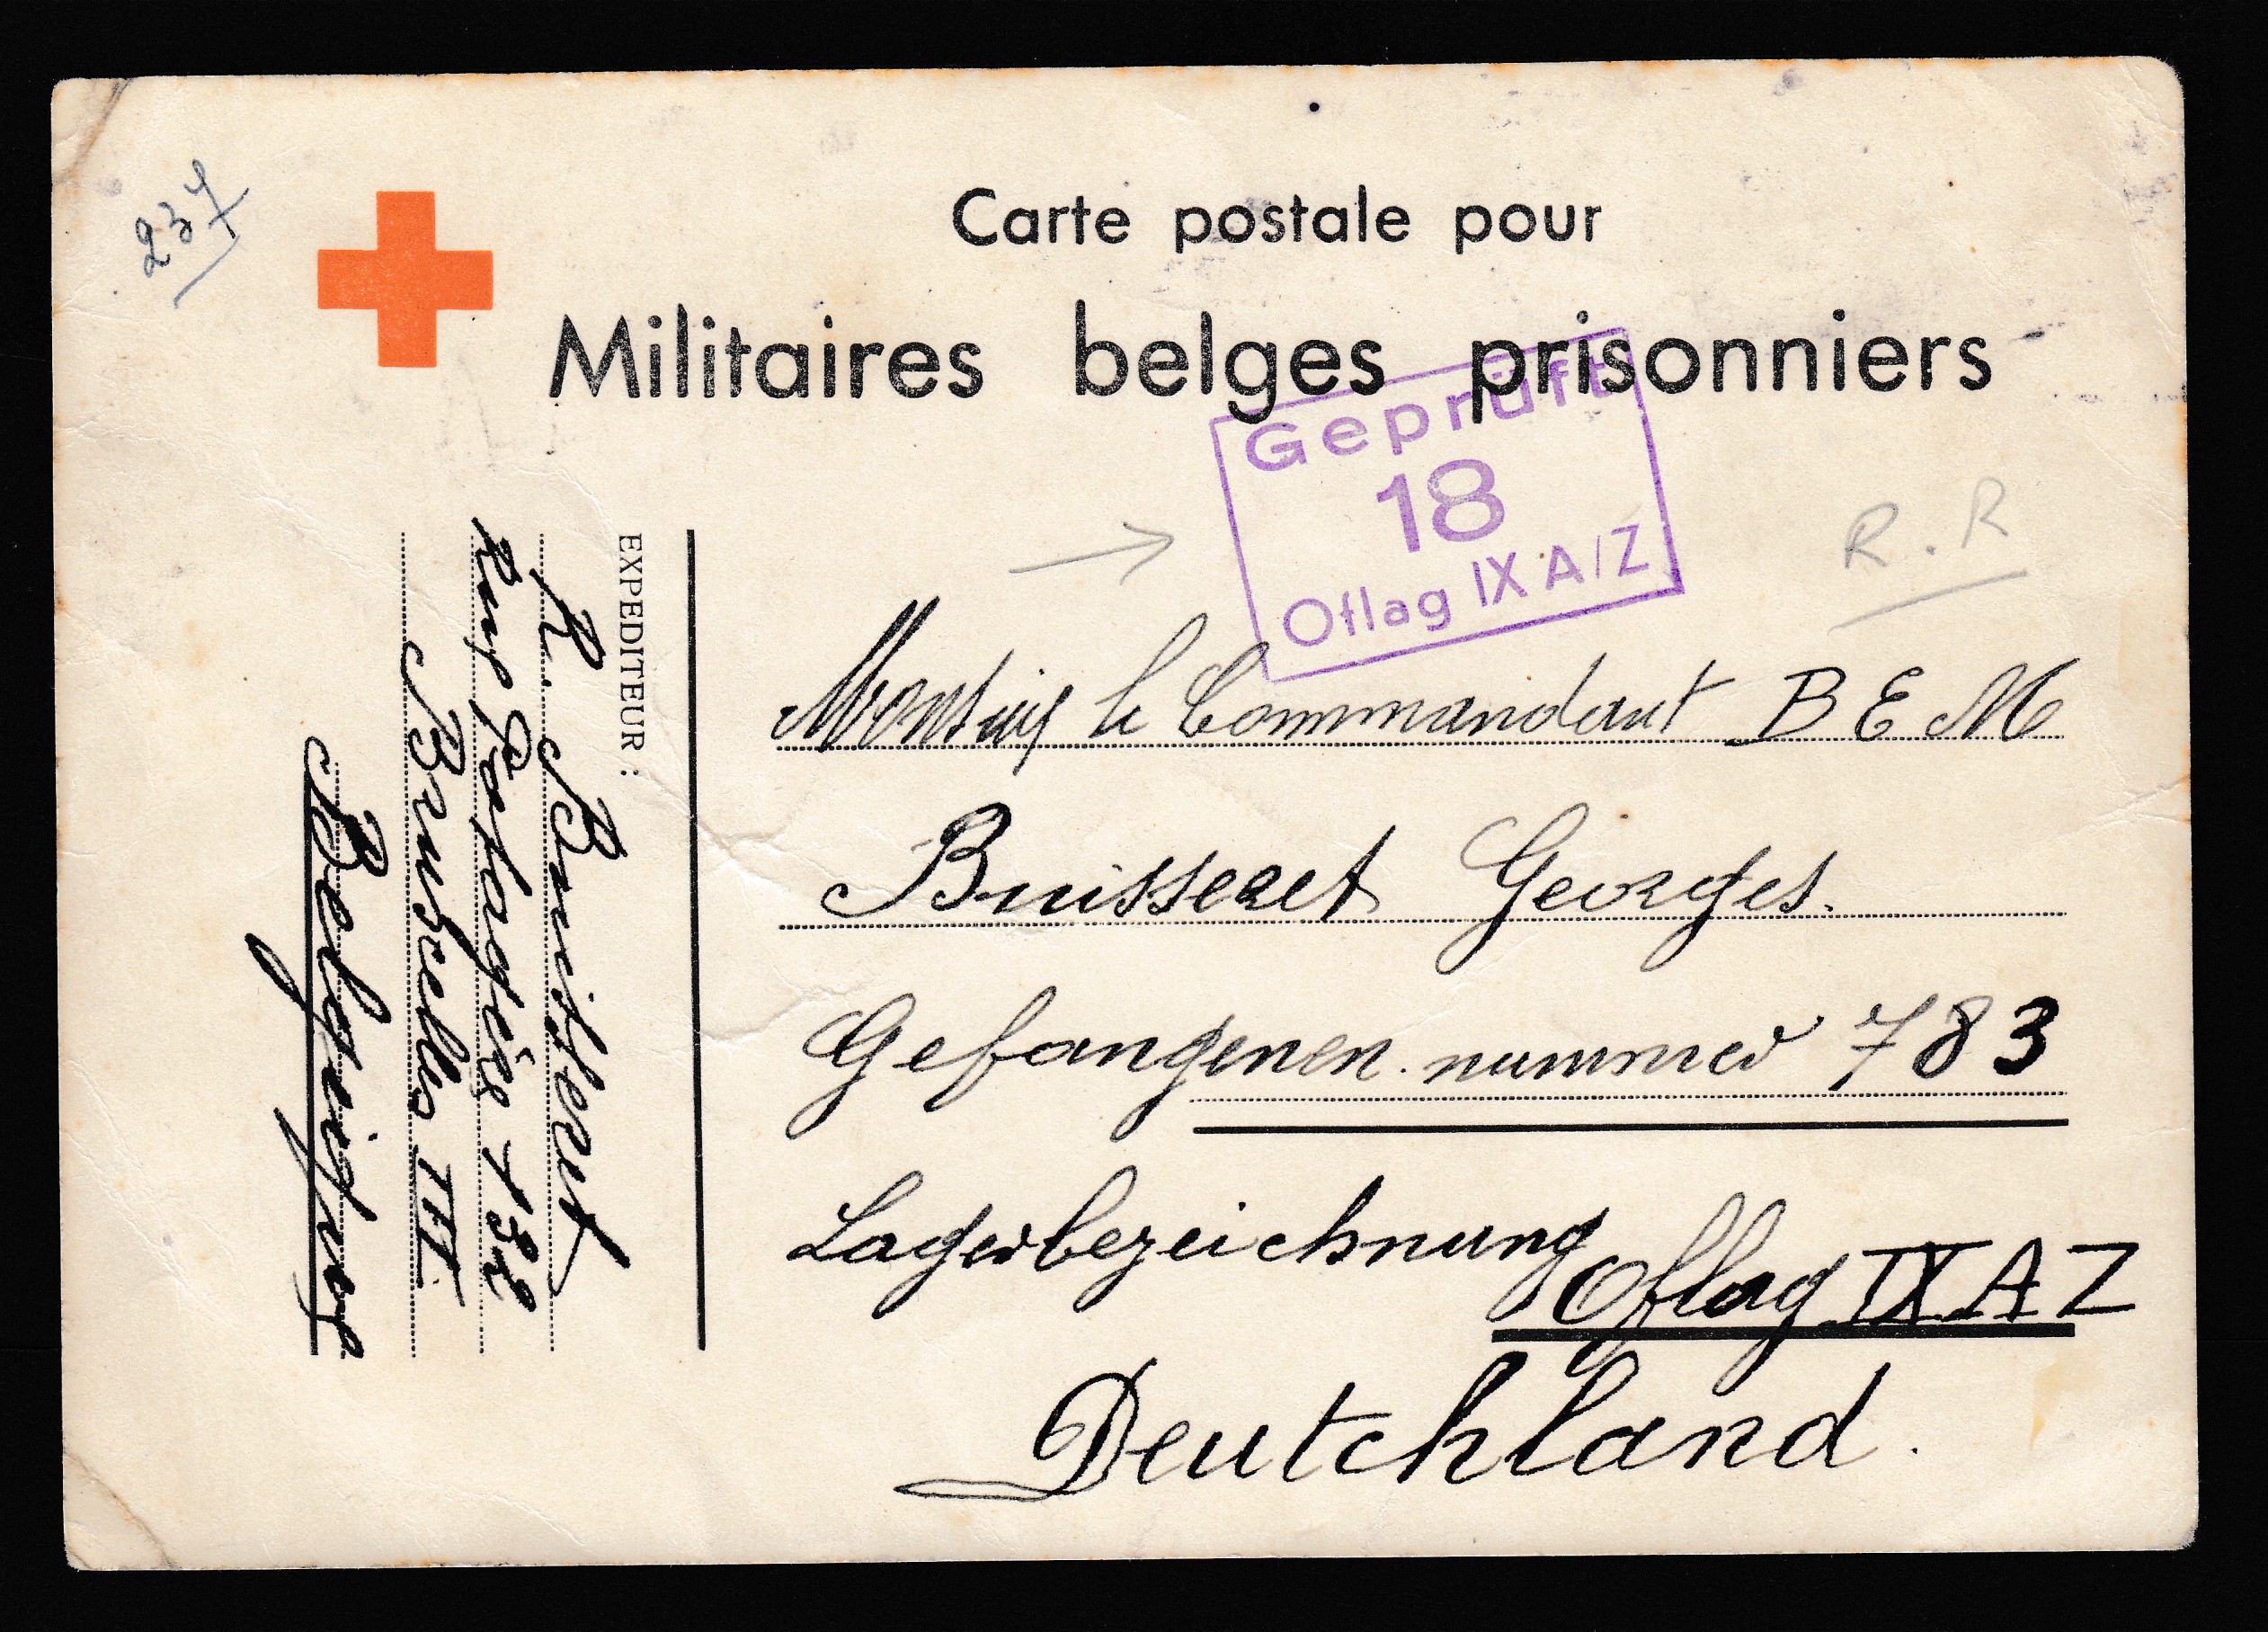 237
Carte postale pour
Militaires belges prisonniers
Geprüft
18
Oflag IX A/Z
R.R
Monsieur le Commandant B E M
Buisseret Georges.
Gefangenen. nummer 783
Lagerbezeichnung Oflag IX A Z
Deutchland.
EXPEDITEUR :
R. Buisseret
Rue 132
Bruxelles III.
Belgique